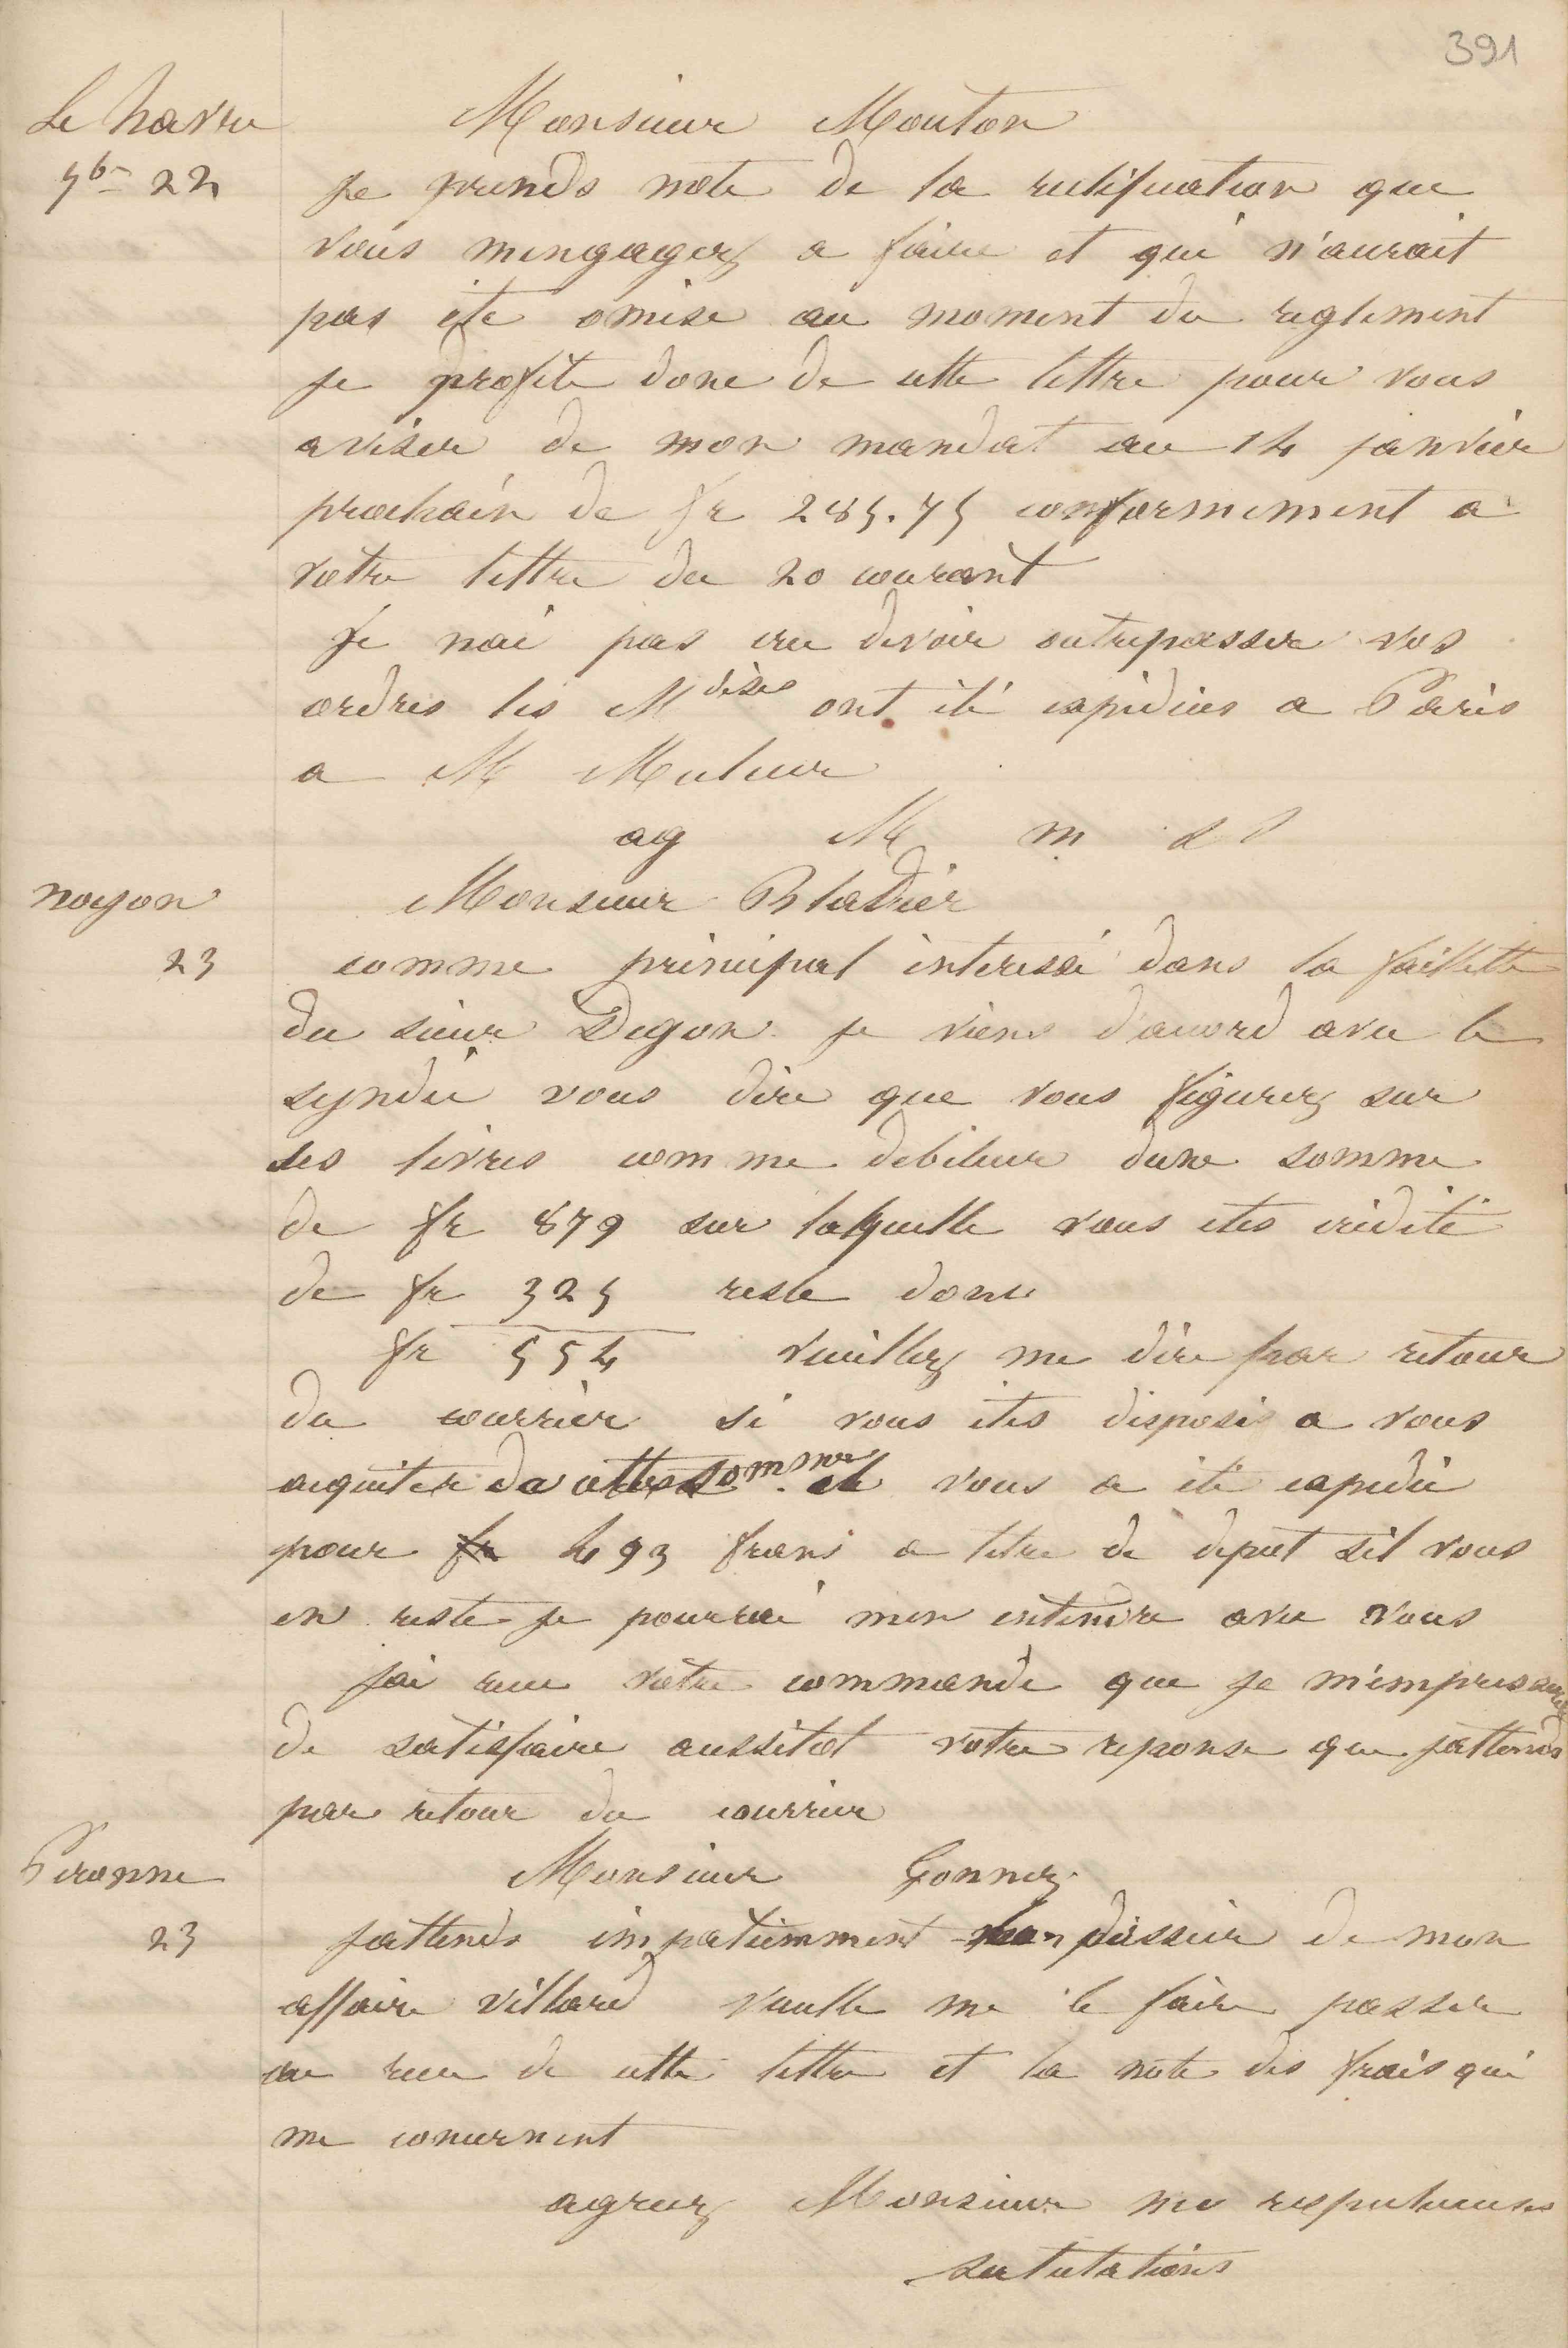 391
Le havre
Monsieur Mouton
9bre 22
Je prends note de la rectification que
vous mengagez a faire et qui n'aurait
pas ete omise au moment du reglement
Je profite donc de cette lettre pour vous
aviser de mon mandat au 14 janvier
prochain de fr 285.75 conformement a
votre lettre du 20 courant
Je nai pas cru devoir outrepasser vos
ordres les Mdises ont été expédiées a Paris
a M
ag M m s s
noyon
Monsieur Bladier
23
comme principal interessé dans la faillette
du sieur Degon je viens d'accord avec le
syndic vous dire que vous figurez sur
ses livres comme debiteur dune somme
de fr 879 sur laquelle vous etes crédité
de fr 325 reste donc
fr 554 veuillez me dire par retour
du courrier si vous étes disposés a vous
acquiter de cette somme. vous a été expedié
pour fr 493 francs a titre de depot sil vous
en reste je pourrai men entendre avec vous
jai recu votre commande que je m'empresserai
de satisfaire aussitot votre reponse que jattends
par retour du courrier
Peronne
Monsieur Gonnez
23
jattends impatiemment dossier de mon
affaire villard me le faire passer
au recu de cette lettre et la note des frais qui
me concernent
agreez Monsieur me respectueuses
salutations